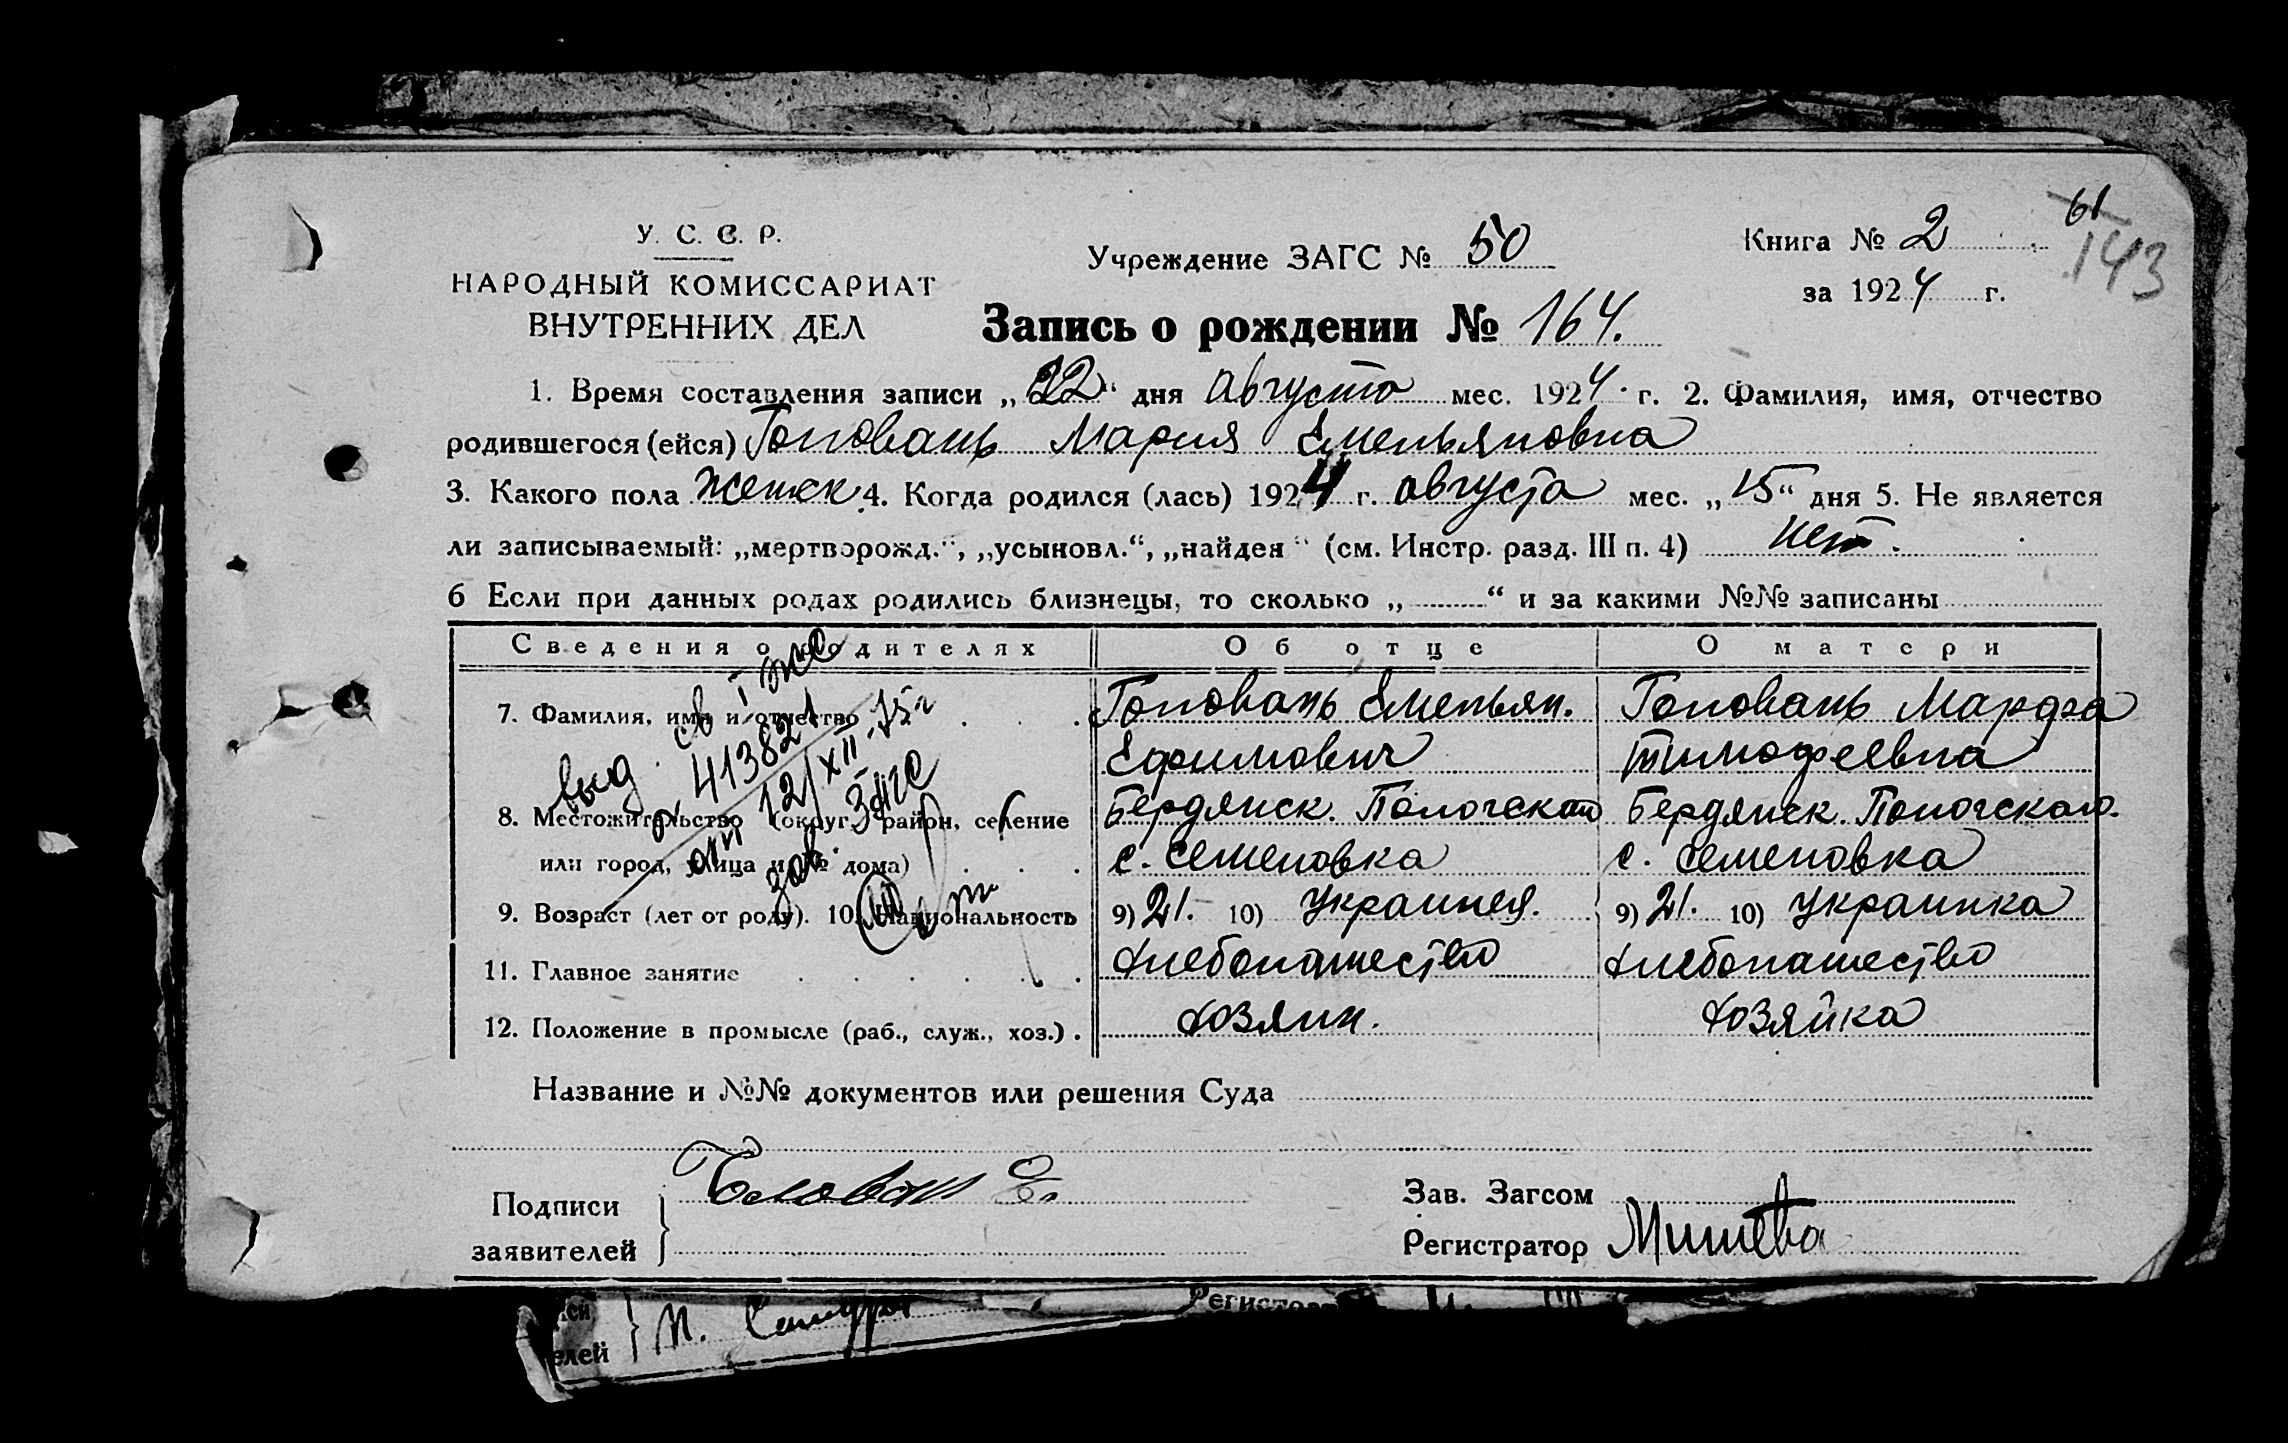 У. С. С. Р.
НАРОДНЫЙ КОМИССАРИАТ
ВНУТРЕННИХ ДЕЛ
Учреждение ЗАГС № 50
Книга № 2
61
143
за 1924 г.
Запись о рождении № 164.
1. Время составления записи „22“ дня августа мес. 1924 г. 2. Фамилия, имя, отчество
родившегося (ейся) Головань Мария Емельяновна
3. Какого пола женск. 4. Когда родился (лась) 1924 г. августа мес. „15“ дня 5. Не является
ли записываемый: „мертворожд.“, „усыновл.“, „найден“ (см. Инстр. разд. III п. 4) нет.
6 Если при данных родах родились близнецы, то сколько „ “ и за какими №№ записаны
Сведения о родителях Об отце О матери
7. Фамилия, имя и отчество Головань Емельян. Головань Марфа
Ефимович Тимофеевна
8. Местожительство (округ, район, селение Бердянск. Пологского Бердянск. Пологского.
или город, улица и № дома) с. Семеновка с. Семеновка
9. Возраст (лет от роду). 10. Национальность 9) 21. 10) Украинец. 9) 21. 10) Украинка
11. Главное занятие хлебопашество хлебопашество
12. Положение в промысле (раб., служ., хоз.) хозяин. хозяйка
выд. св
413821
от 12/XII-75г
зав. загс
Название и №№ документов или решения Суда
Подписи
заявителей
Головань Е.
Зав. Загсом
Регистратор
елей